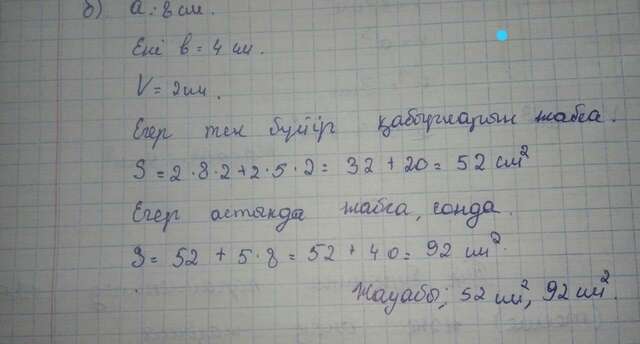 б) a = 8 см.
Ені в = 4 см.
V = 2 см.
Егер тек бүйір қабырғаларын жабса.
S = 2 · 8 · 2 + 2 · 5 · 2 = 32 + 20 = 52 см²
Егер астында жабса, сонда.
S = 52 + 5 · 8 = 52 + 40 = 92 см².
Жауабы; 52 см², 92 см².